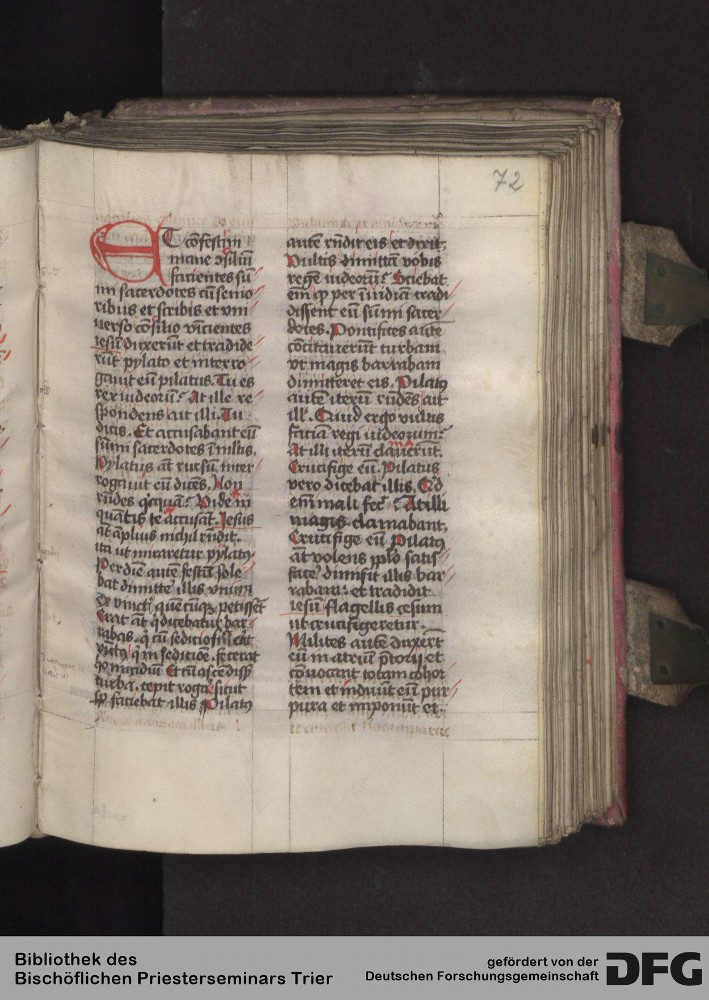 72
ET cōfestim
mane ɔsiliū
facientes sū
mi sacerdotes cū senio
ribus et scribis et vni
uerso cōsilio vīcientes
iesū duxerūt et tradide
rūt pylato et interro
gauit eū pilatus. Tu es
rex iudeorū? At ille re
spondens ait illi. Tu
dicis. Et accusabant eū
sūmi sacerdotes ī mltis.
Pylatus āt rursū inter
rogauit eū dicēs. Non
rūdes qicquā? Vide in
quātis te accusāt. Iesus
āt aplius nichil rūdit.
ita ut miraretur pylatꝰ
Per diē autē festū sole
bat dimitte illis vnum
ex vinctꝭ quēcūqꝫ petissēt
Erat āt q̇ dicebatur bar
rabas. q̇ cū sediciosis erat
vīctꝰ q̇ in sedicōe fecerat
homicidiū Et cū ascēdisꝫ
turba. cepit roga sicut
sp̄ faciebat illis Pilatꝰ
autē rn̄dit eis et dixit.
Vultis dimittā vobis
regē iudeorū? Sciebat
em̄ ꝙ per īuidiā tradi
dissent eū sūmi sacer
dotes. Pontifices autē
cōcitauerūt turbam
vt magis barrabam
dimitteret eis. Pilatꝰ
autē iterū rn̄dēs ait
ill'. Quid ergo vultis
faciā regi iudeorum?
At illi iterū clauerūt.
Crucifige eū. Pilatus
vero dicebat illis. Qd
em̄ mali fec̄? At illi
magis clamabant.
Crucifige eū Pilatꝰ
āt volens pplo satis
facē dimisit illis bar
rabam. et tradidit
iesū flagellis cesum
ut crucifigeretur.
Milites autē duxerūt
eū in atriū p̄torij et
cōuocant totam cohor
tem et induūt eū pur
pura et imponūt ei.
Bibliothek des
Bischöflichen Priesterseminars Trier
gefördert von der
Deutschen Forschungsgemeinschaft
DFG